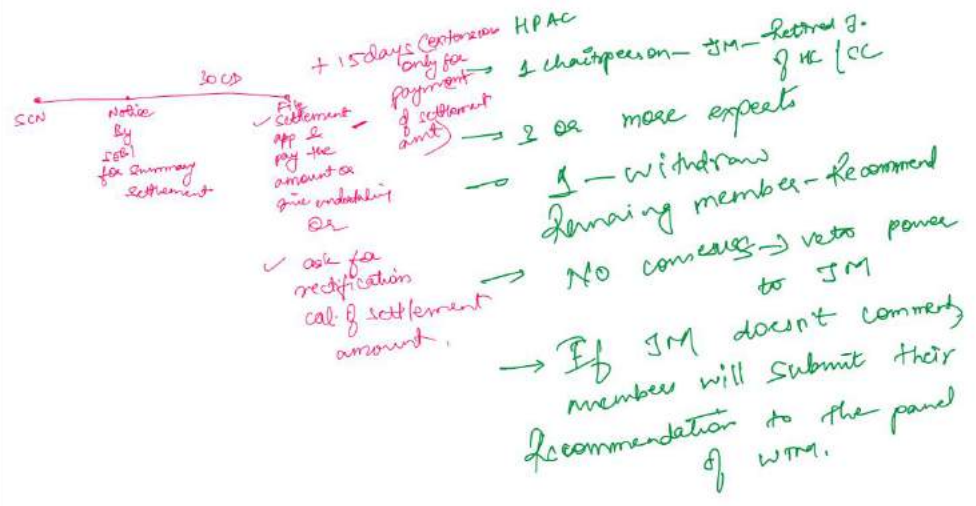 SCN
Notice
By
SEBI
for summary
settlement
30 CD
File
✓ settlement
app &
pay the
amount or
give undertaking
Or
✓ ask for
rectification
cal. of settlement
amount.
+ 15 days (extension
only for
payment
of settlement
amt)
HPAC
→ 1 chairperson - JM - Retired J.
of HC / SC
→ 3 or more experts
→ 1 - withdraw
Remaing member - Recommend
→ No consesus → veto power
to JM
→ If JM doesn't comment,
members will submit their
Recommendation to the panel
of WTM.